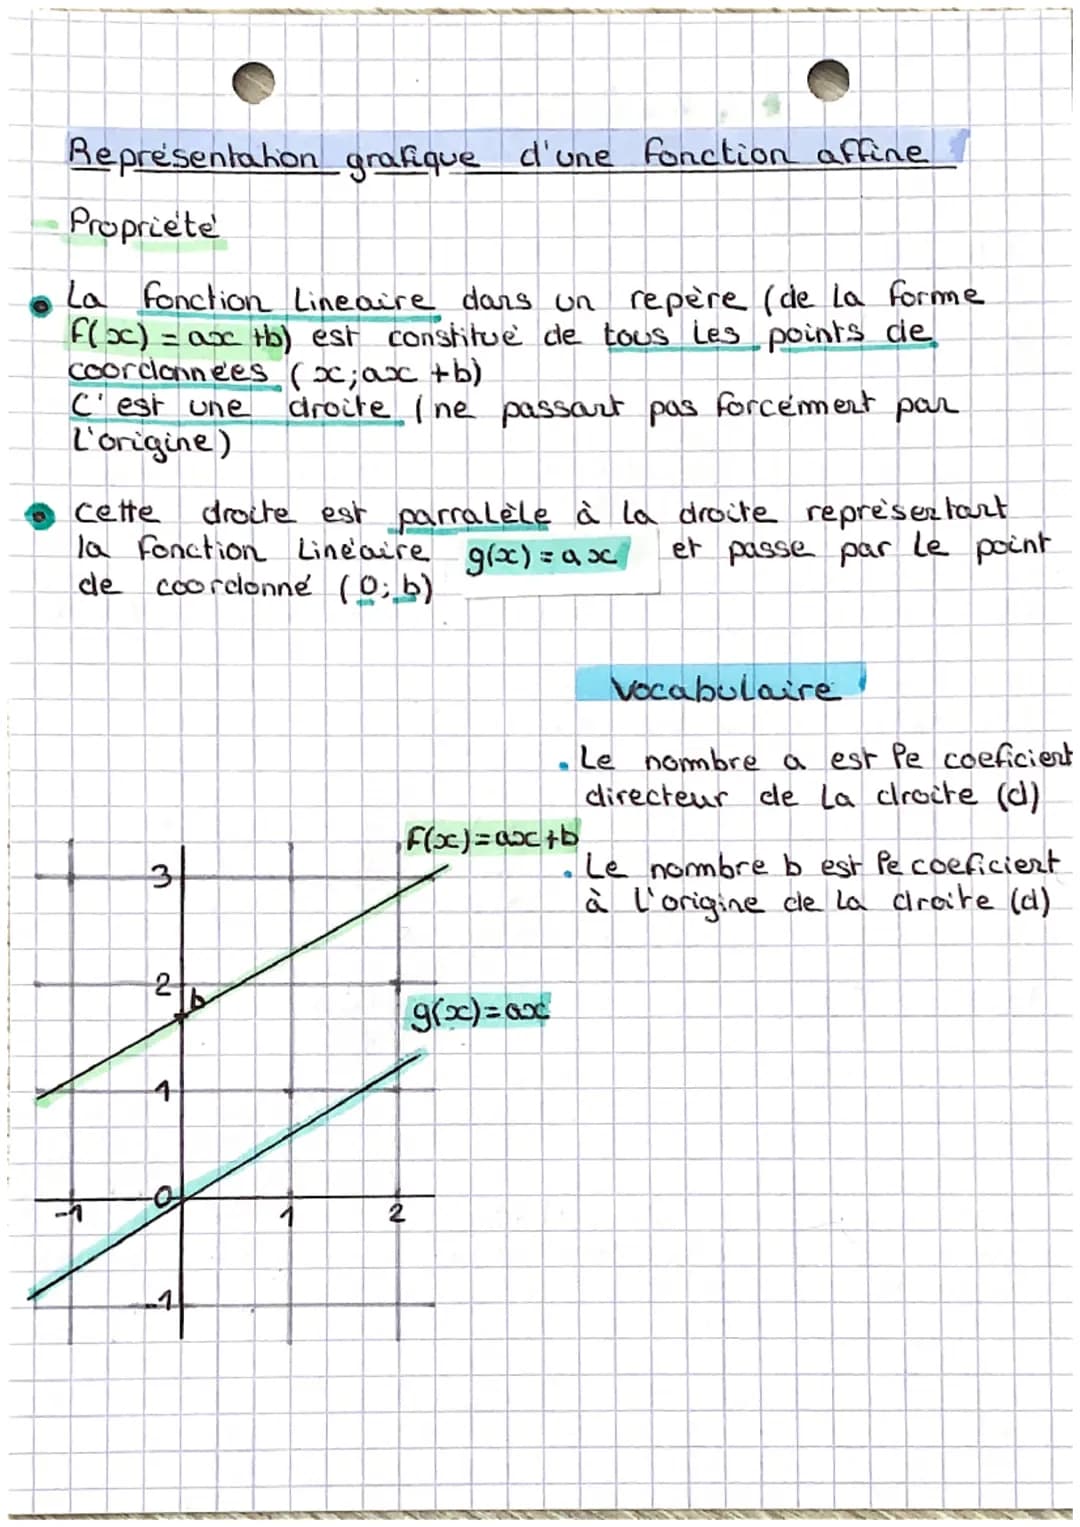 Représentation grafique d'une fonction affine
Propriété
La fonction Lineaire dans un repère (de la forme
f(x) = ax +b) est constitué de tous les points de
coordonnées (x; ax +b)
C'est une droite (ne passant pas forcémment par
L'origine)
cette droite est parralèle à la droite représentant
la fonction Linéaire g(x) = ax et passe par le point
de coordonné (0; b)
Vocabulaire
Le nombre a est le coeficient
directeur de la droite (d)
f(x)=ax+b
Le nombre b est le coeficient
à l'origine de la droite (d)
3
2
b
g(x)=ax
1
0
-1
1
2
-1